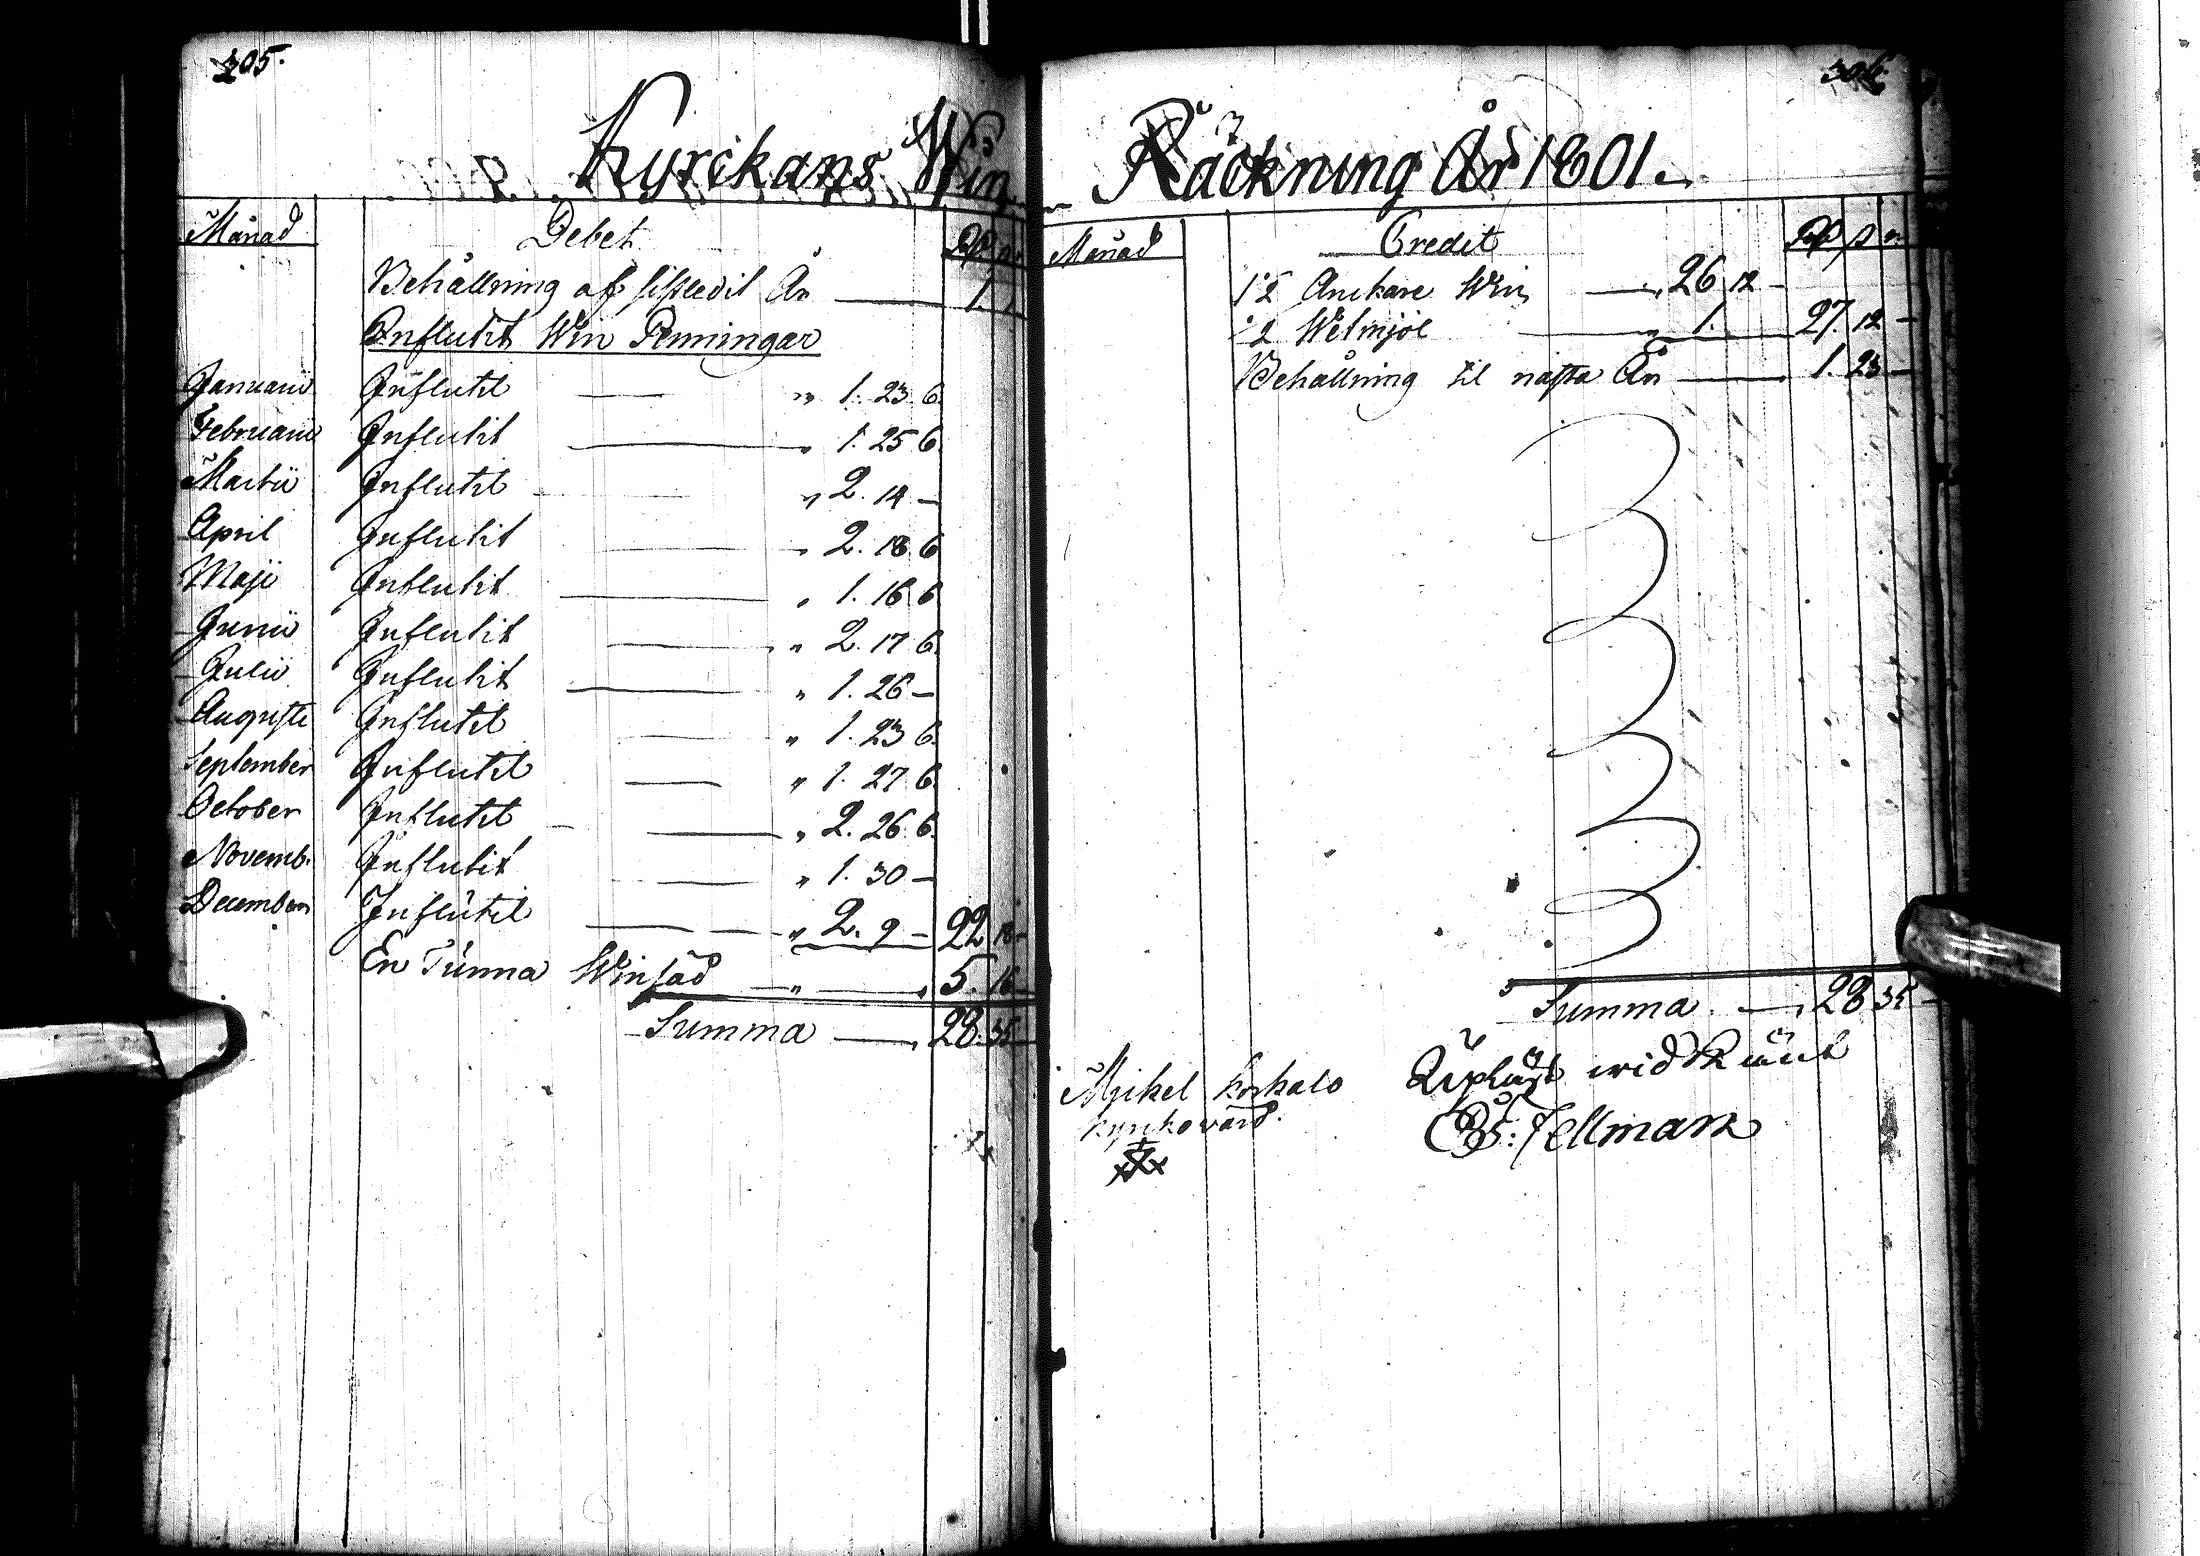 305.
Kyrckans Win
Månad Debet Rd s r
Behållning af sistledit År 1. 1.
Influtit Win Penningar
Januarii Influtit " 1. 23. 6.
Februarii Influtit " 1. 25 6.
Martii Influtit " 2. 14 —
April Influtit " 2. 18. 6
Maji Influtit " 1. 16 6
Junii Influtit " 2. 17 6.
Julii Influtit " 1. 26 —
Augusti Influtit " 1. 23 6.
September Influtit " 1. 27 6.
October Influtit " 2. 26. 6.
Novemb. Influtit " 1. 30 —
December Influtit " 2. 9 — 22 18 —
En Tunna Winsäd " " 5. 16 —
Summa — 28. 35 —
306
Räckning År 1801.
Månad Credit Rd s r
1 2 Anckare Win — 26 12 —
1 2 Wetmjöl — 1. — 27. 12 —
Behållning til nästa År — 1. 23 —
Summa — 28 35 —
Mikel Korkalo Upläst wid
kyrkovärd. Es: Fellman